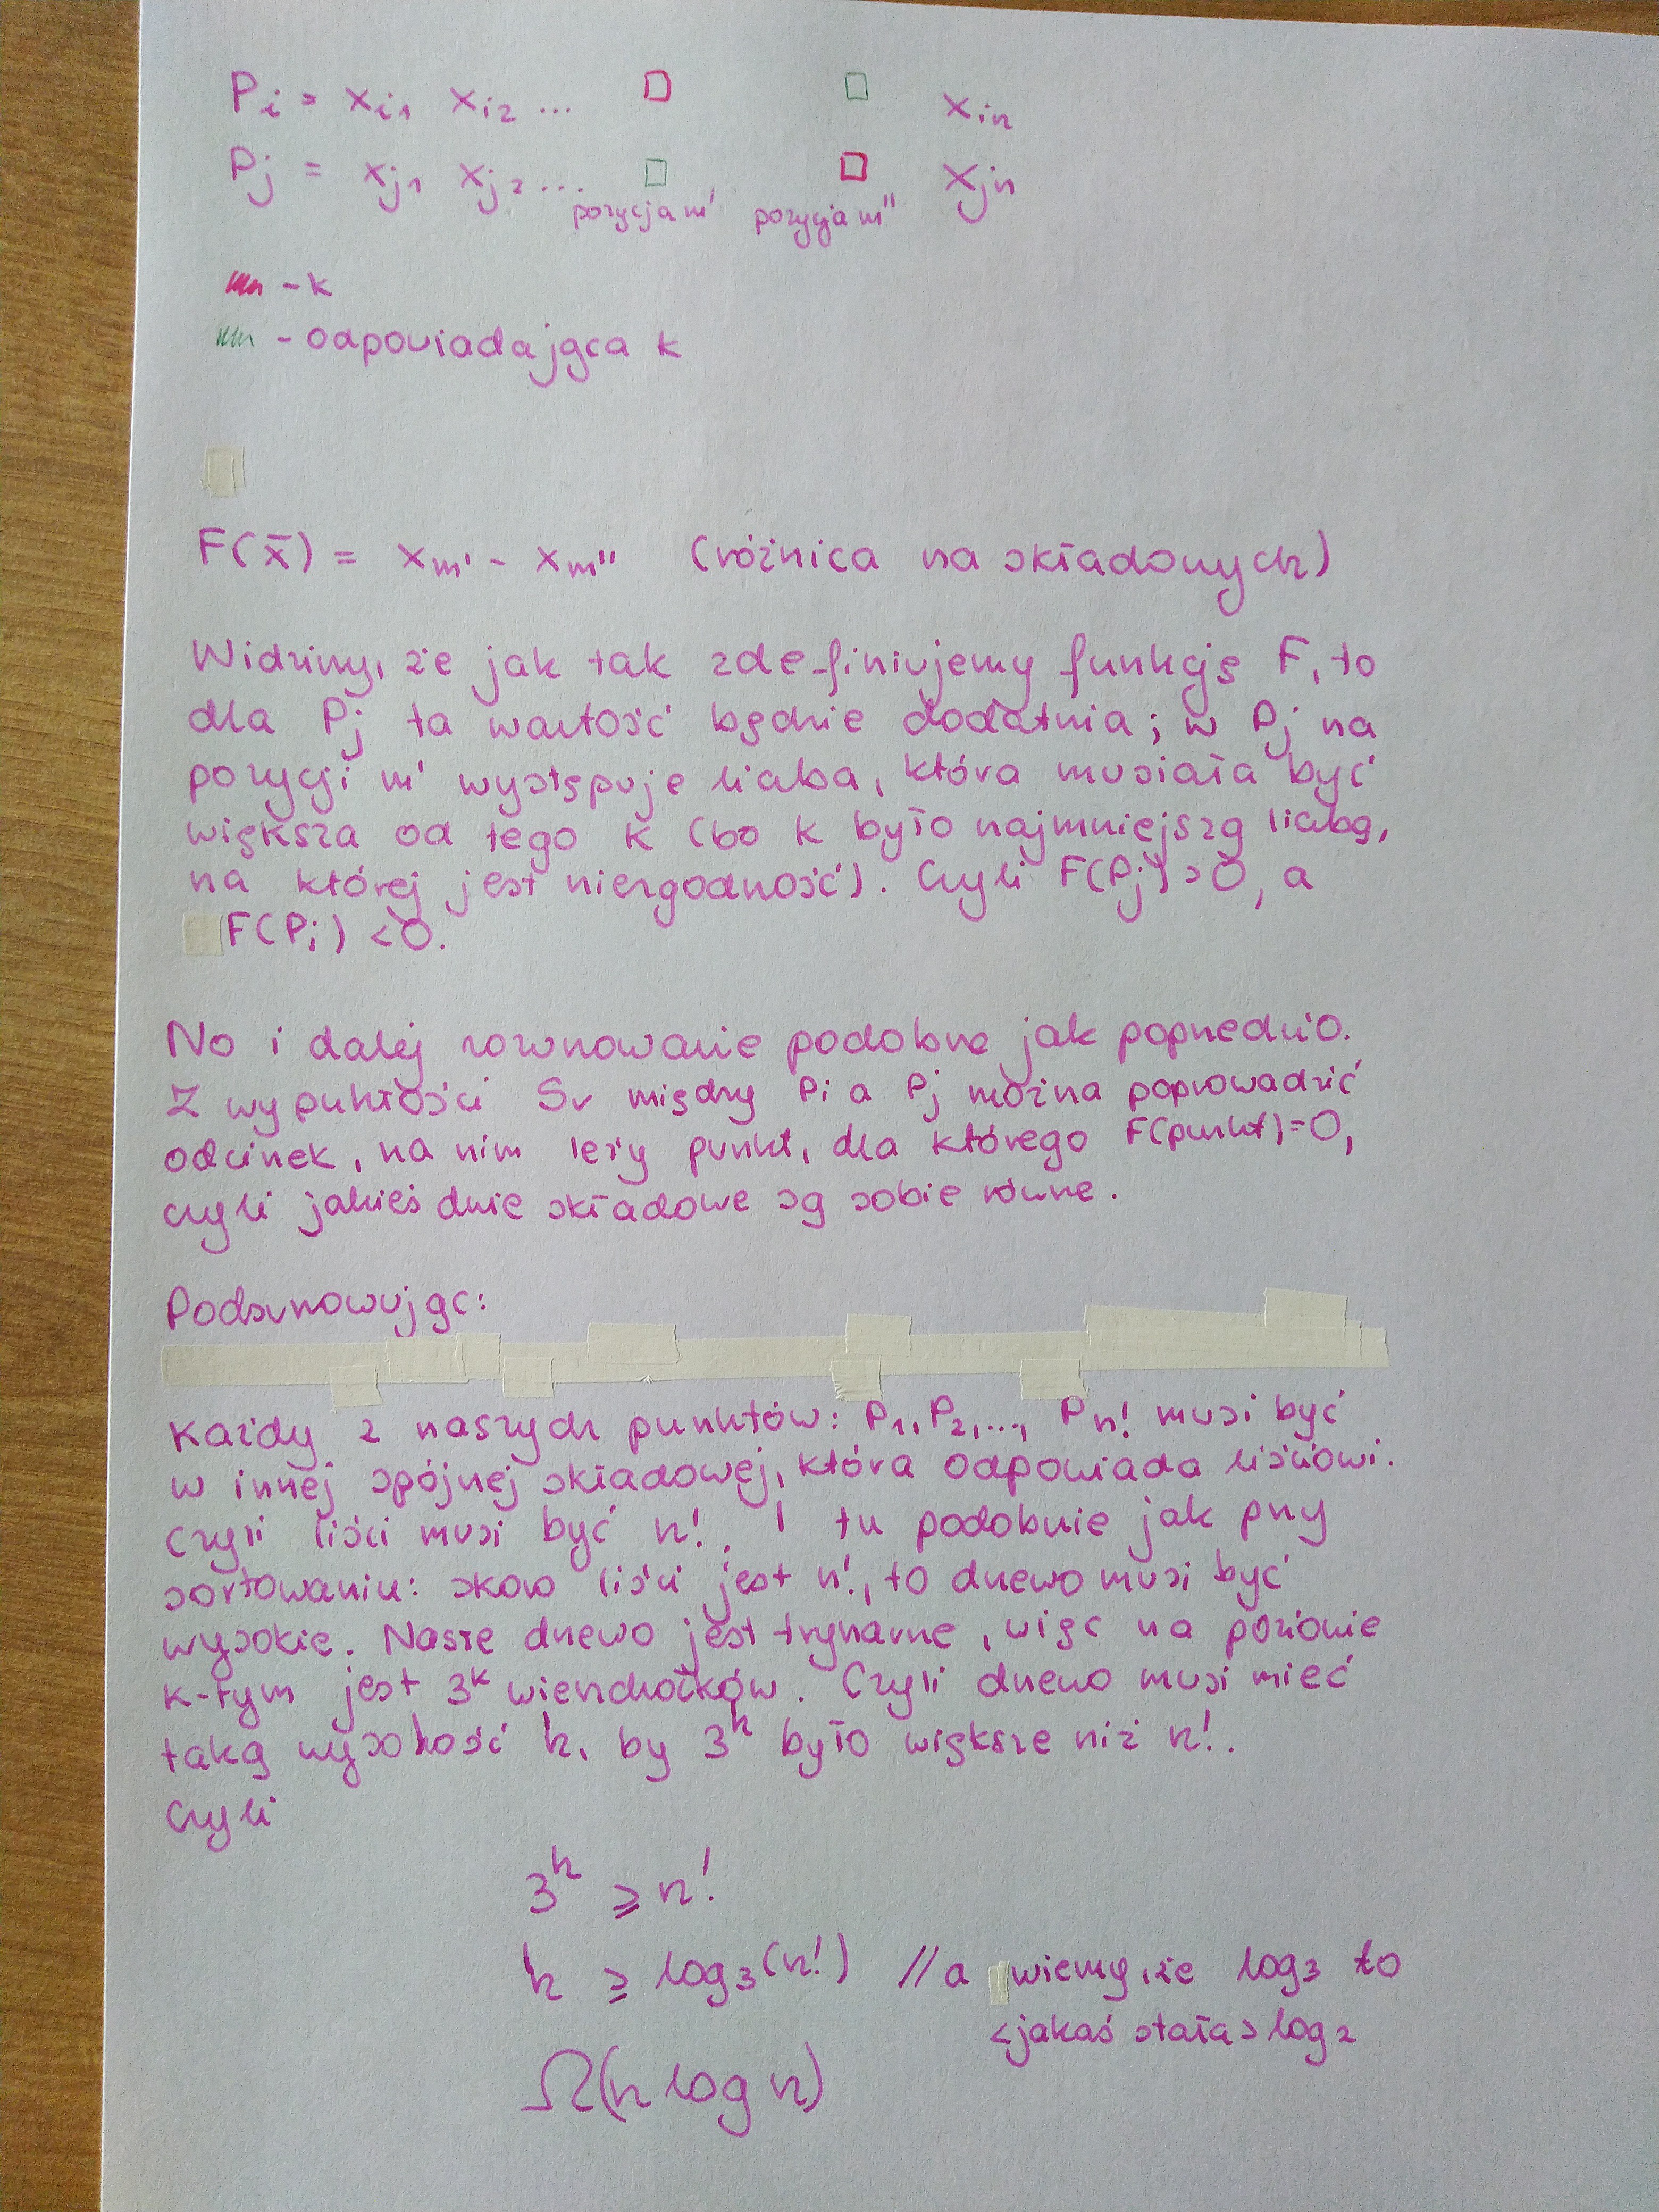 Pi = xi1 xi2 ... □ □ xin
Pj = xj1 xj2 ... □ □ xjn
pozycja m' pozycja m''
- k
- odpowiadająca k
F(x̄) = xm' - xm'' (różnica na składowych)
Widzimy, że jak tak zdefiniujemy funkcję F, to
dla Pj ta wartość będzie dodatnia; w Pj na
pozycji m' występuje liczba, która musiała być
większa od tego k (bo k było najmniejszą liczbą,
na której jest niezgodność). Czyli F(Pj) > 0, a
F(Pi) < 0.
No i dalej rozumowanie podobne jak poprzednio.
Z wypukłości Sv między Pi a Pj można poprowadzić
odcinek, na nim leży punkt, dla którego F(punkt)=0,
czyli jakieś dwie składowe są sobie równe.
Podsumowując:
Każdy z naszych punktów: P1, P2, ..., Pn! musi być
w innej spójnej składowej, która odpowiada liściowi.
Czyli liści musi być n!. I tu podobnie jak przy
sortowaniu: skoro liści jest n!, to drzewo musi być
wysokie. Nasze drzewo jest trynarne, więc na poziomie
k-tym jest 3^k wierzchołków. Czyli drzewo musi mieć
taką wysokość h, by 3^h było większe niż n!.
Czyli
3^h ≥ n!
h ≥ log3(n!) // a wiemy, że log3 to
<jakaś stała> log2
Ω(n log n)